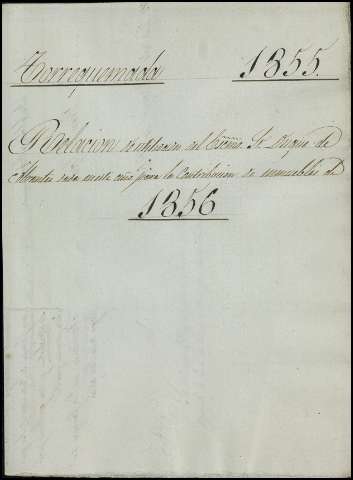 Torrequemada 1855.
Relacion de utilidades del Exmo. Sr. Duque de
Abrantes dada en este año para la Contribucion de inmuebles de
1856